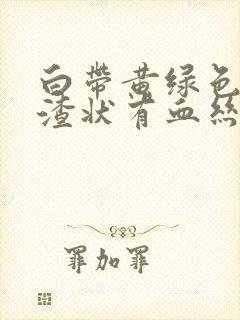 白带黄绿色
渣状有血丝
罪加罪